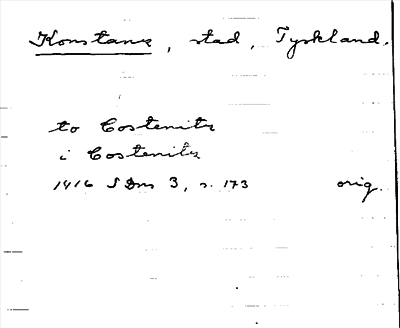 Konstanz, stad, Tyskland.
to Costenitz
i Costenitz
1416 SDns 3, s. 173 orig.